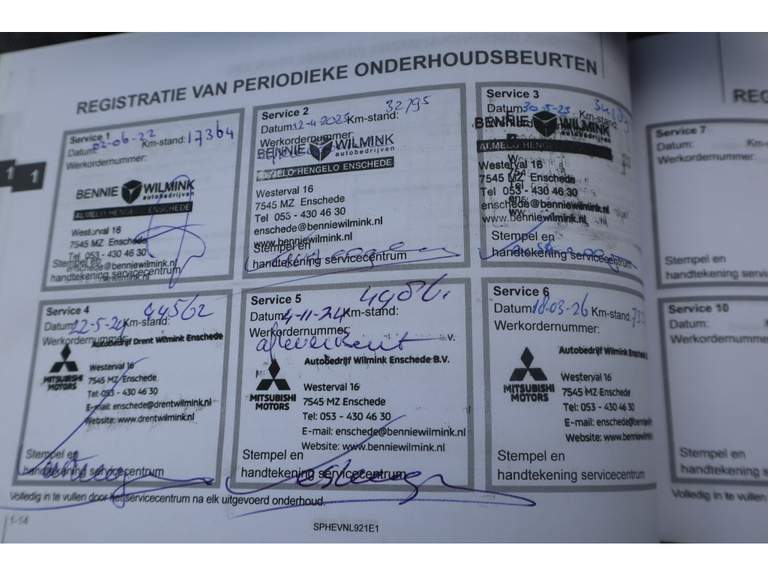 REGISTRATIE VAN PERIODIEKE ONDERHOUDSBEURTEN
Service 1
Datum: 02-06-22 Km-stand: 17364
Werkordernummer:
BENNIE WILMINK
autobedrijven
ALMELO HENGELO ENSCHEDE
Westerval 16
7545 MZ Enschede
Tel 053 - 430 46 30
enschede@benniewilmink.nl
www.benniewilmink.nl
Stempel en
handtekening servicecentrum
Service 2
Datum: 12-4-2023 Km-stand: 32795
Werkordernummer:
BENNIE WILMINK
autobedrijven
ALMELO HENGELO ENSCHEDE
Westerval 16
7545 MZ Enschede
Tel 053 - 430 46 30
enschede@benniewilmink.nl
www.benniewilmink.nl
Stempel en
handtekening servicecentrum
Service 3
Datum: 30-5-23 Km-stand:
BENNIE WILMINK
autobedrijven
ALMELO HENGELO ENSCHEDE
Westerval 16
7545 MZ Enschede
Tel 053 - 430 46 30
enschede@benniewilmink.nl
www.benniewilmink.nl
Stempel en
handtekening servicecentrum
Service 4
Datum: 22-5-24 Km-stand: 44562
Werkordernummer:
Autobedrijf Drent Wilmink Enschede
MITSUBISHI
MOTORS
Westerval 16
7545 MZ Enschede
Tel: 053 - 430 46 30
E-mail: enschede@drentwilmink.nl
Website: www.drentwilmink.nl
Stempel en
handtekening servicecentrum
Service 5
Datum: 4-11-24 Km-stand:
Werkordernummer:
B.V.
Autobedrijf Wilmink Enschede B.V.
MITSUBISHI
MOTORS
Westerval 16
7545 MZ Enschede
Tel: 053 - 430 46 30
E-mail: enschede@benniewilmink.nl
Website: www.benniewilmink.nl
Stempel en
handtekening servicecentrum
Service 6
Datum: 18-03-26 Km-stand:
Werkordernummer:
Autobedrijf Wilmink Enschede
MITSUBISHI
MOTORS
Westerval 16
7545 MZ Enschede
Tel: 053 - 430 46 30
E-mail: enschede@benniewilmink
Website: www.benniewilmink
Stempel en
handtekening servicecentrum
Volledig in te vullen door het servicecentrum na elk uitgevoerd onderhoud.
1-14
SPHEVNL921E1
1
1
REG
Service 7
Datum: Km-
Werkordernummer:
Stempel en
handtekening
Service 10
Datum:
Werkordernumme
Stempel en
handtekening
Volledig in te vullen